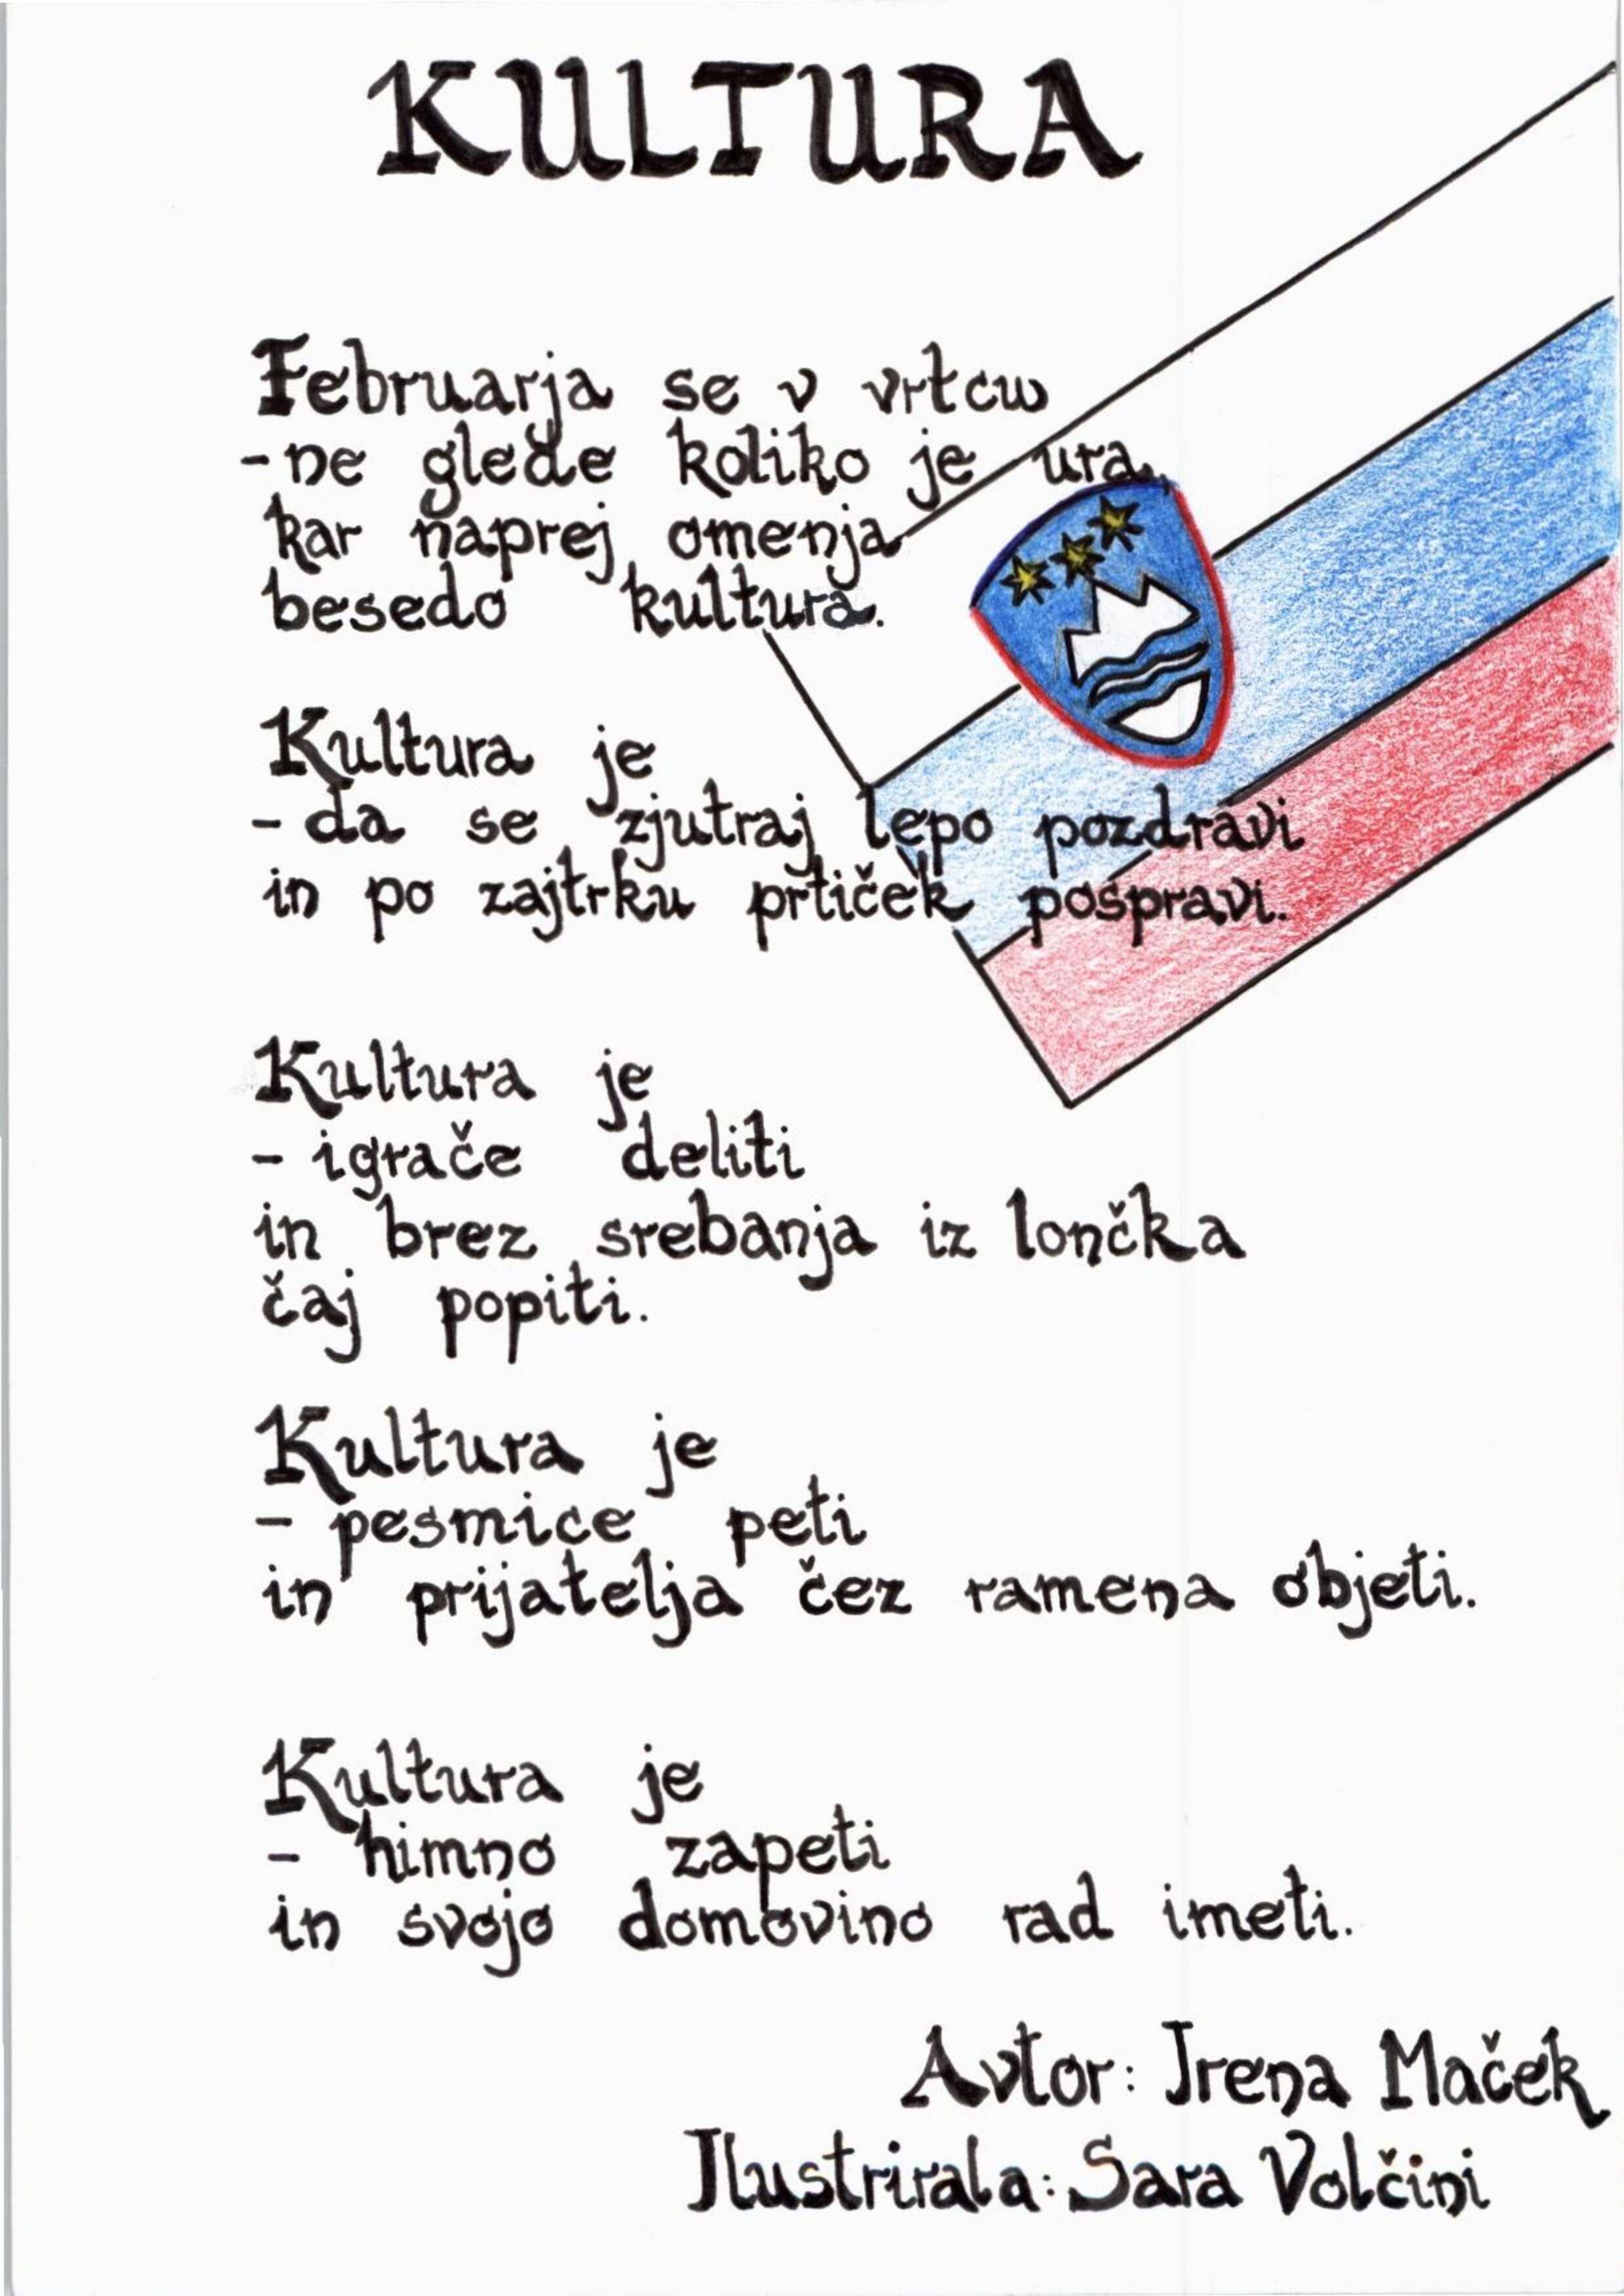 KULTURA
Februarja se v vrtcu
-ne glede koliko je ura,
kar naprej omenja
besedo kultura.
Kultura je
- da se zjutraj lepo pozdravi
in po zajtrku prtiček pospravi.
Kultura je
- igrače deliti
in brez srebanja iz lončka
čaj popiti.
Kultura je
- pesmice peti
in prijatelja čez ramena objeti.
Kultura je
- himno zapeti
in svojo domovino rad imeti.
Avtor: Irena Maček
Ilustrirala: Sara Volčini